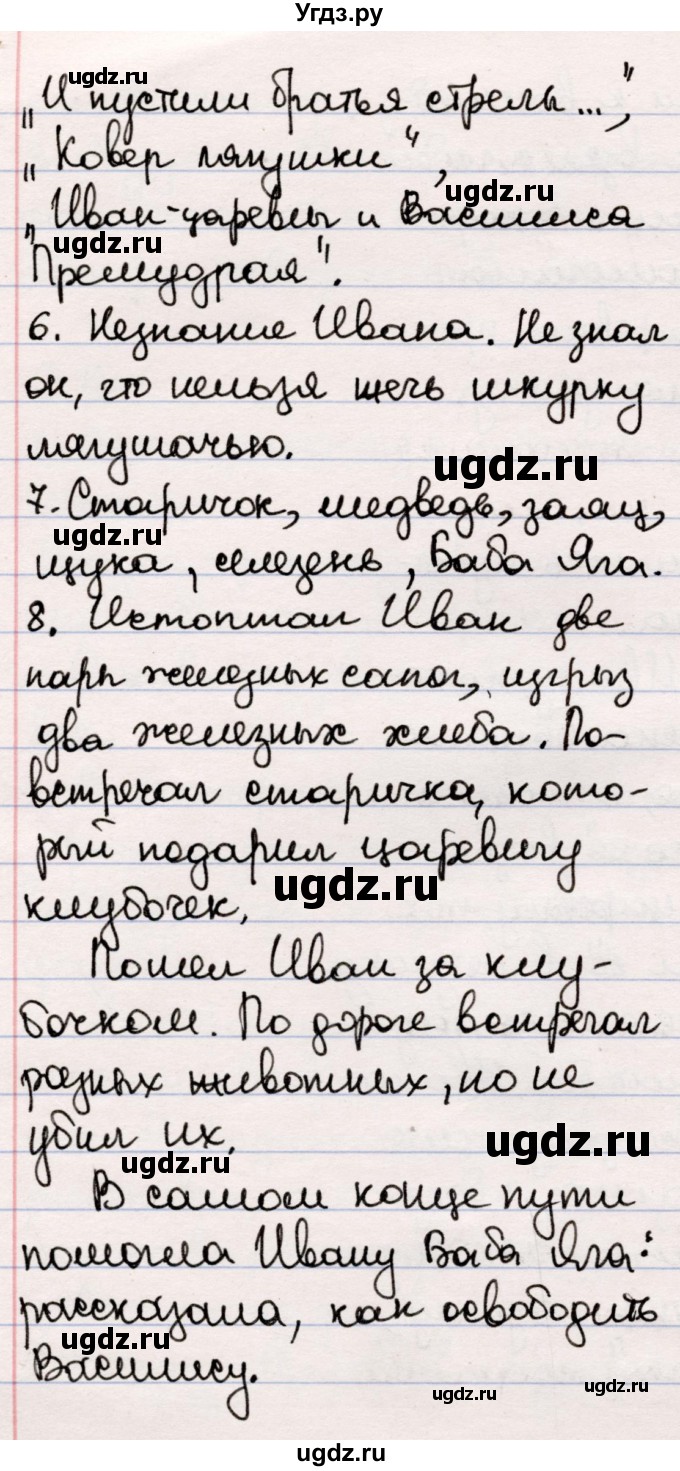 Угдз.ру
„И пустили братья стрелы...“,
„Ковер лягушки“,
„Иван-царевич и Василиса
Премудрая“.
6. Незнание Ивана. Не знал
он, что нельзя жечь шкурку
лягушачью.
7. Старичок, медведь, заяц,
щука, селезень, Баба Яга.
8. Истоптал Иван две
пары железных сапог, изгрыз
два железных хлеба. По-
встречал старичка, кото-
рый подарил царевичу
клубочек.
Пошел Иван за клу-
бочком. По дороге встречал
разных животных, но не
убил их.
В самом конце пути
помогла Ивану Баба Яга:
рассказала, как освободить
Василису.
ugdz.ru
ugdz.ru
ugdz.ru
ugdz.ru
ugdz.ru
ugdz.ru
ugdz.ru
ugdz.ru
ugdz.ru
ugdz.ru
ugdz.ru
ugdz.ru